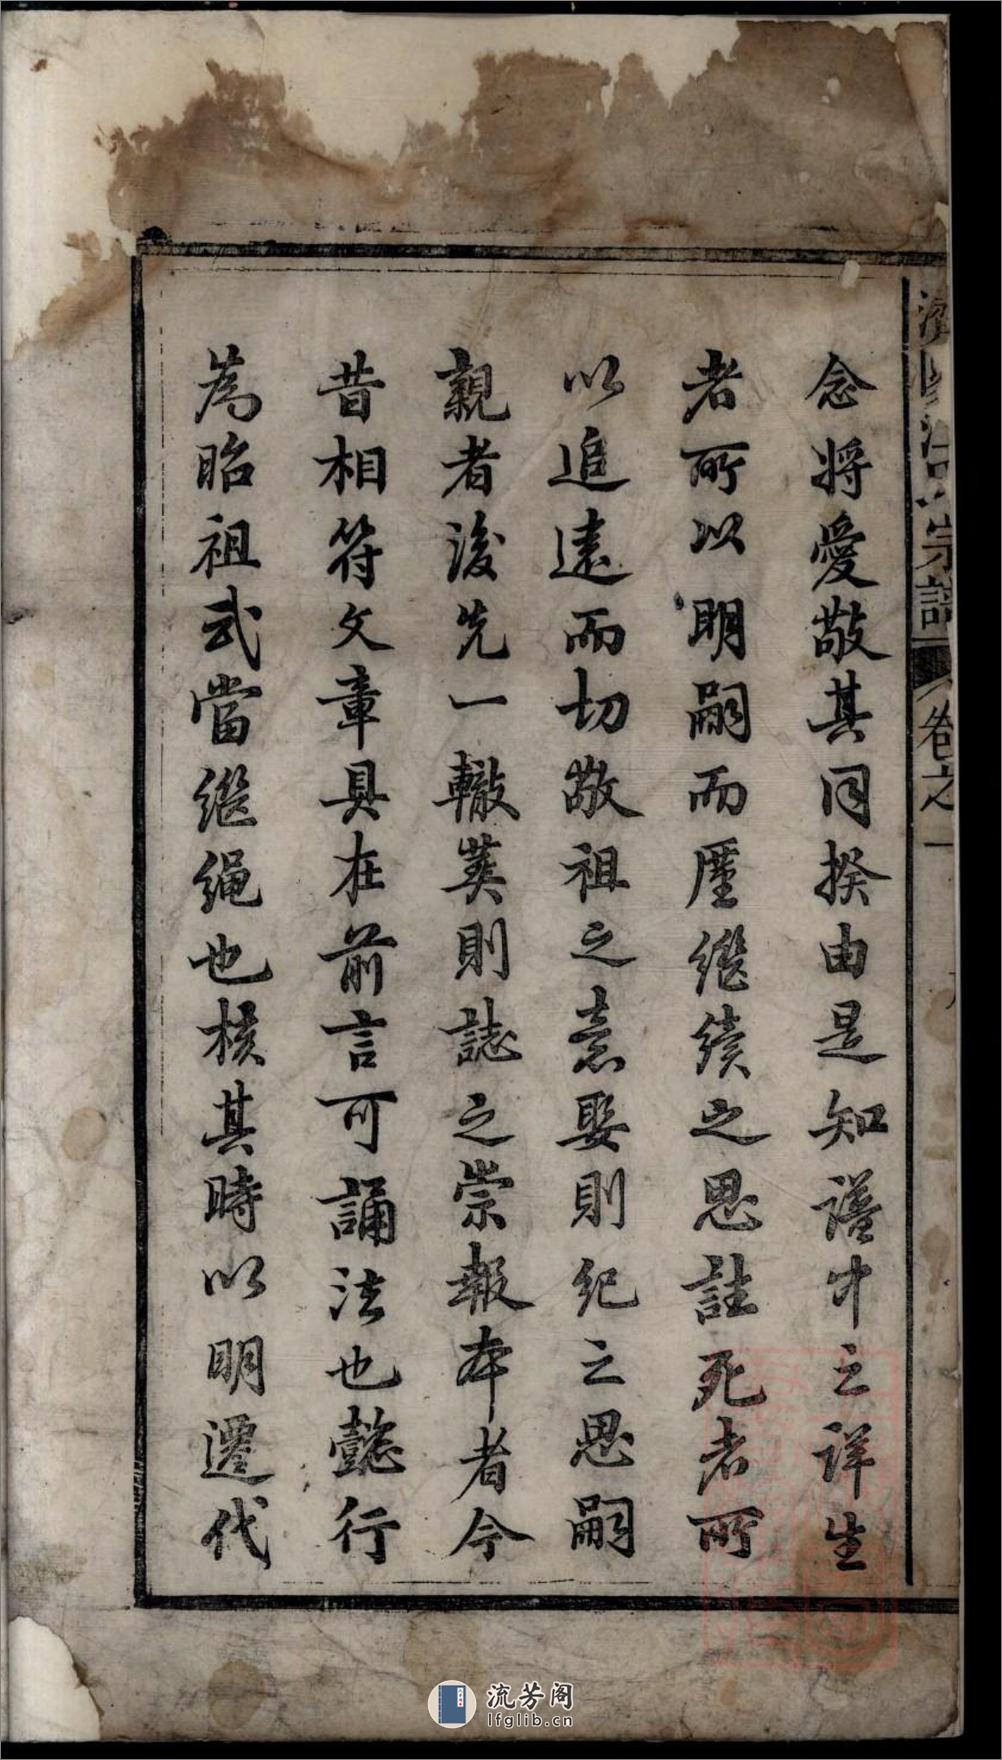 念將愛敬其同揆由是知譜中之詳生
者所以明嗣而厪繼續之思註死者所
以追遠而切敬祖之意娶則紀之思嗣
親者後先一轍葬則誌之崇報本者今
昔相符文章具在前言可誦法也懿行
為昭祖武當繼繩也核其時以明遷代
宗譜 卷之一
流芳阁
lfglib.cn